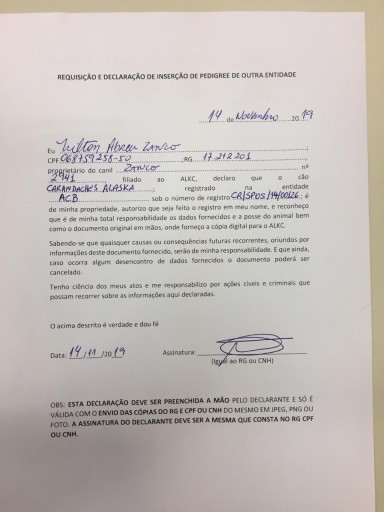 REQUISIÇÃO E DECLARAÇÃO DE INSERÇÃO DE PEDIGREE DE OUTRA ENTIDADE
14 de Novembro 2019
Eu Abreu Zanco
CPF 068759258-50 RG 17.212.201
proprietário do canil ZANCO nº
2941, filiado ao ALKC, declaro que o cão
CARANDACHES ALASKA, registrado na entidade
ACB sob o número de registro CR/SPDS/14/00126; é
de minha propriedade, autorizo que seja feito o registro em meu nome, e reconheço
que é de minha total responsabilidade os dados fornecidos e a posse do animal bem
como o documento original em mãos, onde forneço a cópia digital para o ALKC.
Sabendo-se que quaisquer causas ou consequências futuras recorrentes, oriundos por
informações deste documento fornecido, serão de minha responsabilidade. E que ainda,
caso ocorra algum desencontro de dados fornecidos o documento poderá ser
cancelado.
Tenho ciência dos meus atos e me responsabilizo por ações cíveis e criminais que
possam recorrer sobre as informações aqui declaradas.
O acima descrito é verdade e dou fé
Data: 14/11/2019 Assinatura:
(Igual ao RG ou CNH)
OBS: ESTA DECLARAÇÃO DEVE SER PREENCHIDA A MÃO PELO DECLARANTE E SÓ É
VÁLIDA COM O ENVIO DAS CÓPIAS DO RG E CPF OU CNH DO MESMO EM JPEG, PNG OU
FOTO. A ASSINATURA DO DECLARANTE DEVE SER A MESMA QUE CONSTA NO RG CPF
OU CNH.